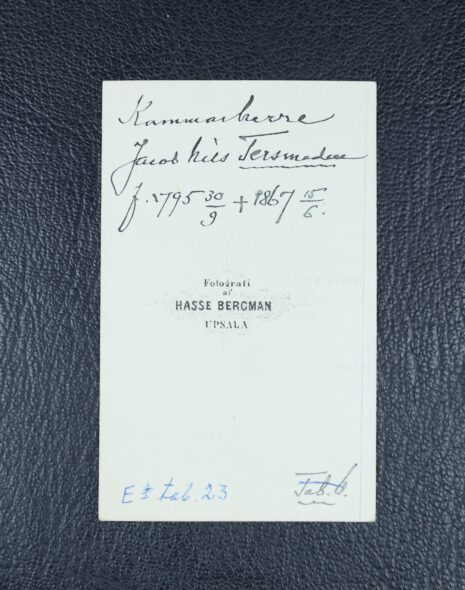 Kammarherre
Jacob Nils Tersmeden
f. 1795 30/9 + 1867 15/6.
Fotografi
af
HASSE BERGMAN
UPSALA
Tab. 23
Tab. 6.